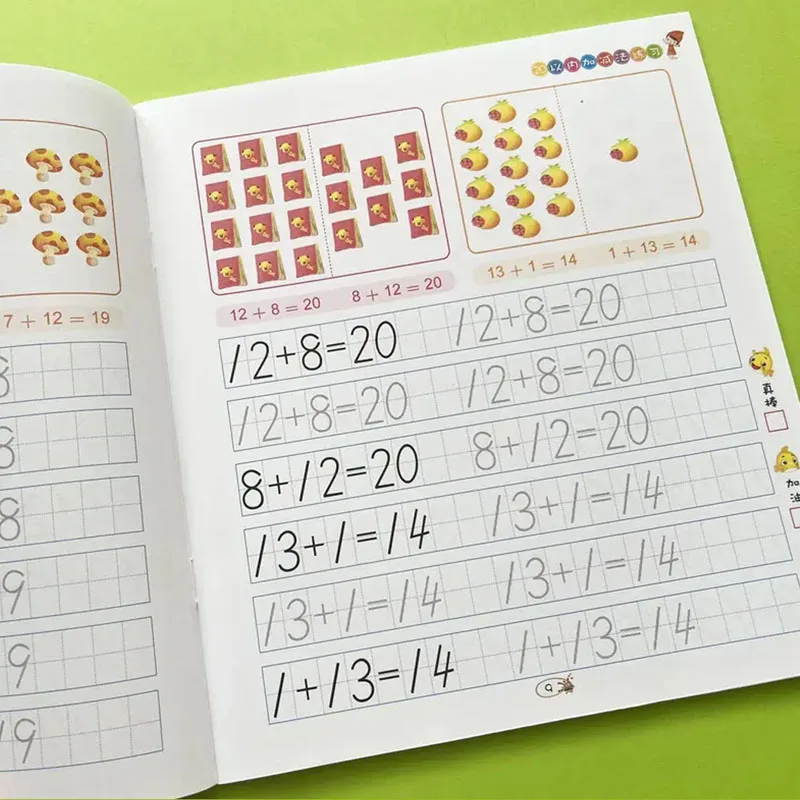 20以内加减法练习
7 + 12 = 19
12 + 8 = 20 8 + 12 = 20
13 + 1 = 14 1 + 13 = 14
8
8
8
9
9
19
12+8=20 12+8=20
12+8=20 12+8=20
8+12=20 8+12=20
13+1=14 13+1=14
13+1=14 13+1=14
1+13=14 1+13=14
真棒
加油
9